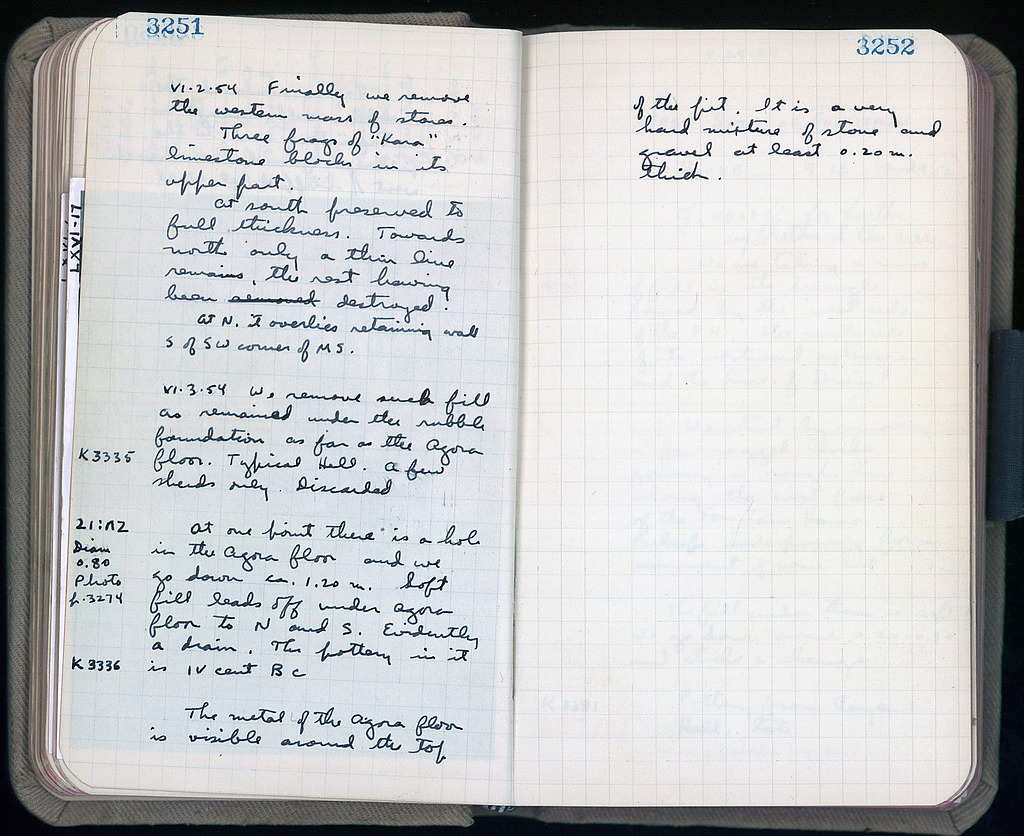 3251
VI·2·54 Finally we remove
the western mass of stones.
Three frags of "Kara"
limestone blocks in its
upper part.
At south preserved to
full thickness. Towards
north only a thin line
remains, the rest having
been removed destroyed.
At N. it overlies retaining wall
S of SW corner of MS.
VI·3·54 We remove such fill
as remained under the rubble
foundation as far as the Agora
K 3335 floor. Typical Hell. A few
sherds only. Discarded
21:ΛΖ At one point there is a hole
Diam in the Agora floor and we
0.80 go down ca. 1.20 m. Soft
Photo fill leads off under Agora
p.3274 floor to N and S. Evidently
a drain. The pottery in it
K 3336 is IV cent B C
The metal of the Agora floor
is visible around the top
3252
of the pit. It is a very
hard mixture of stone and
gravel at least 0.20 m.
thick.